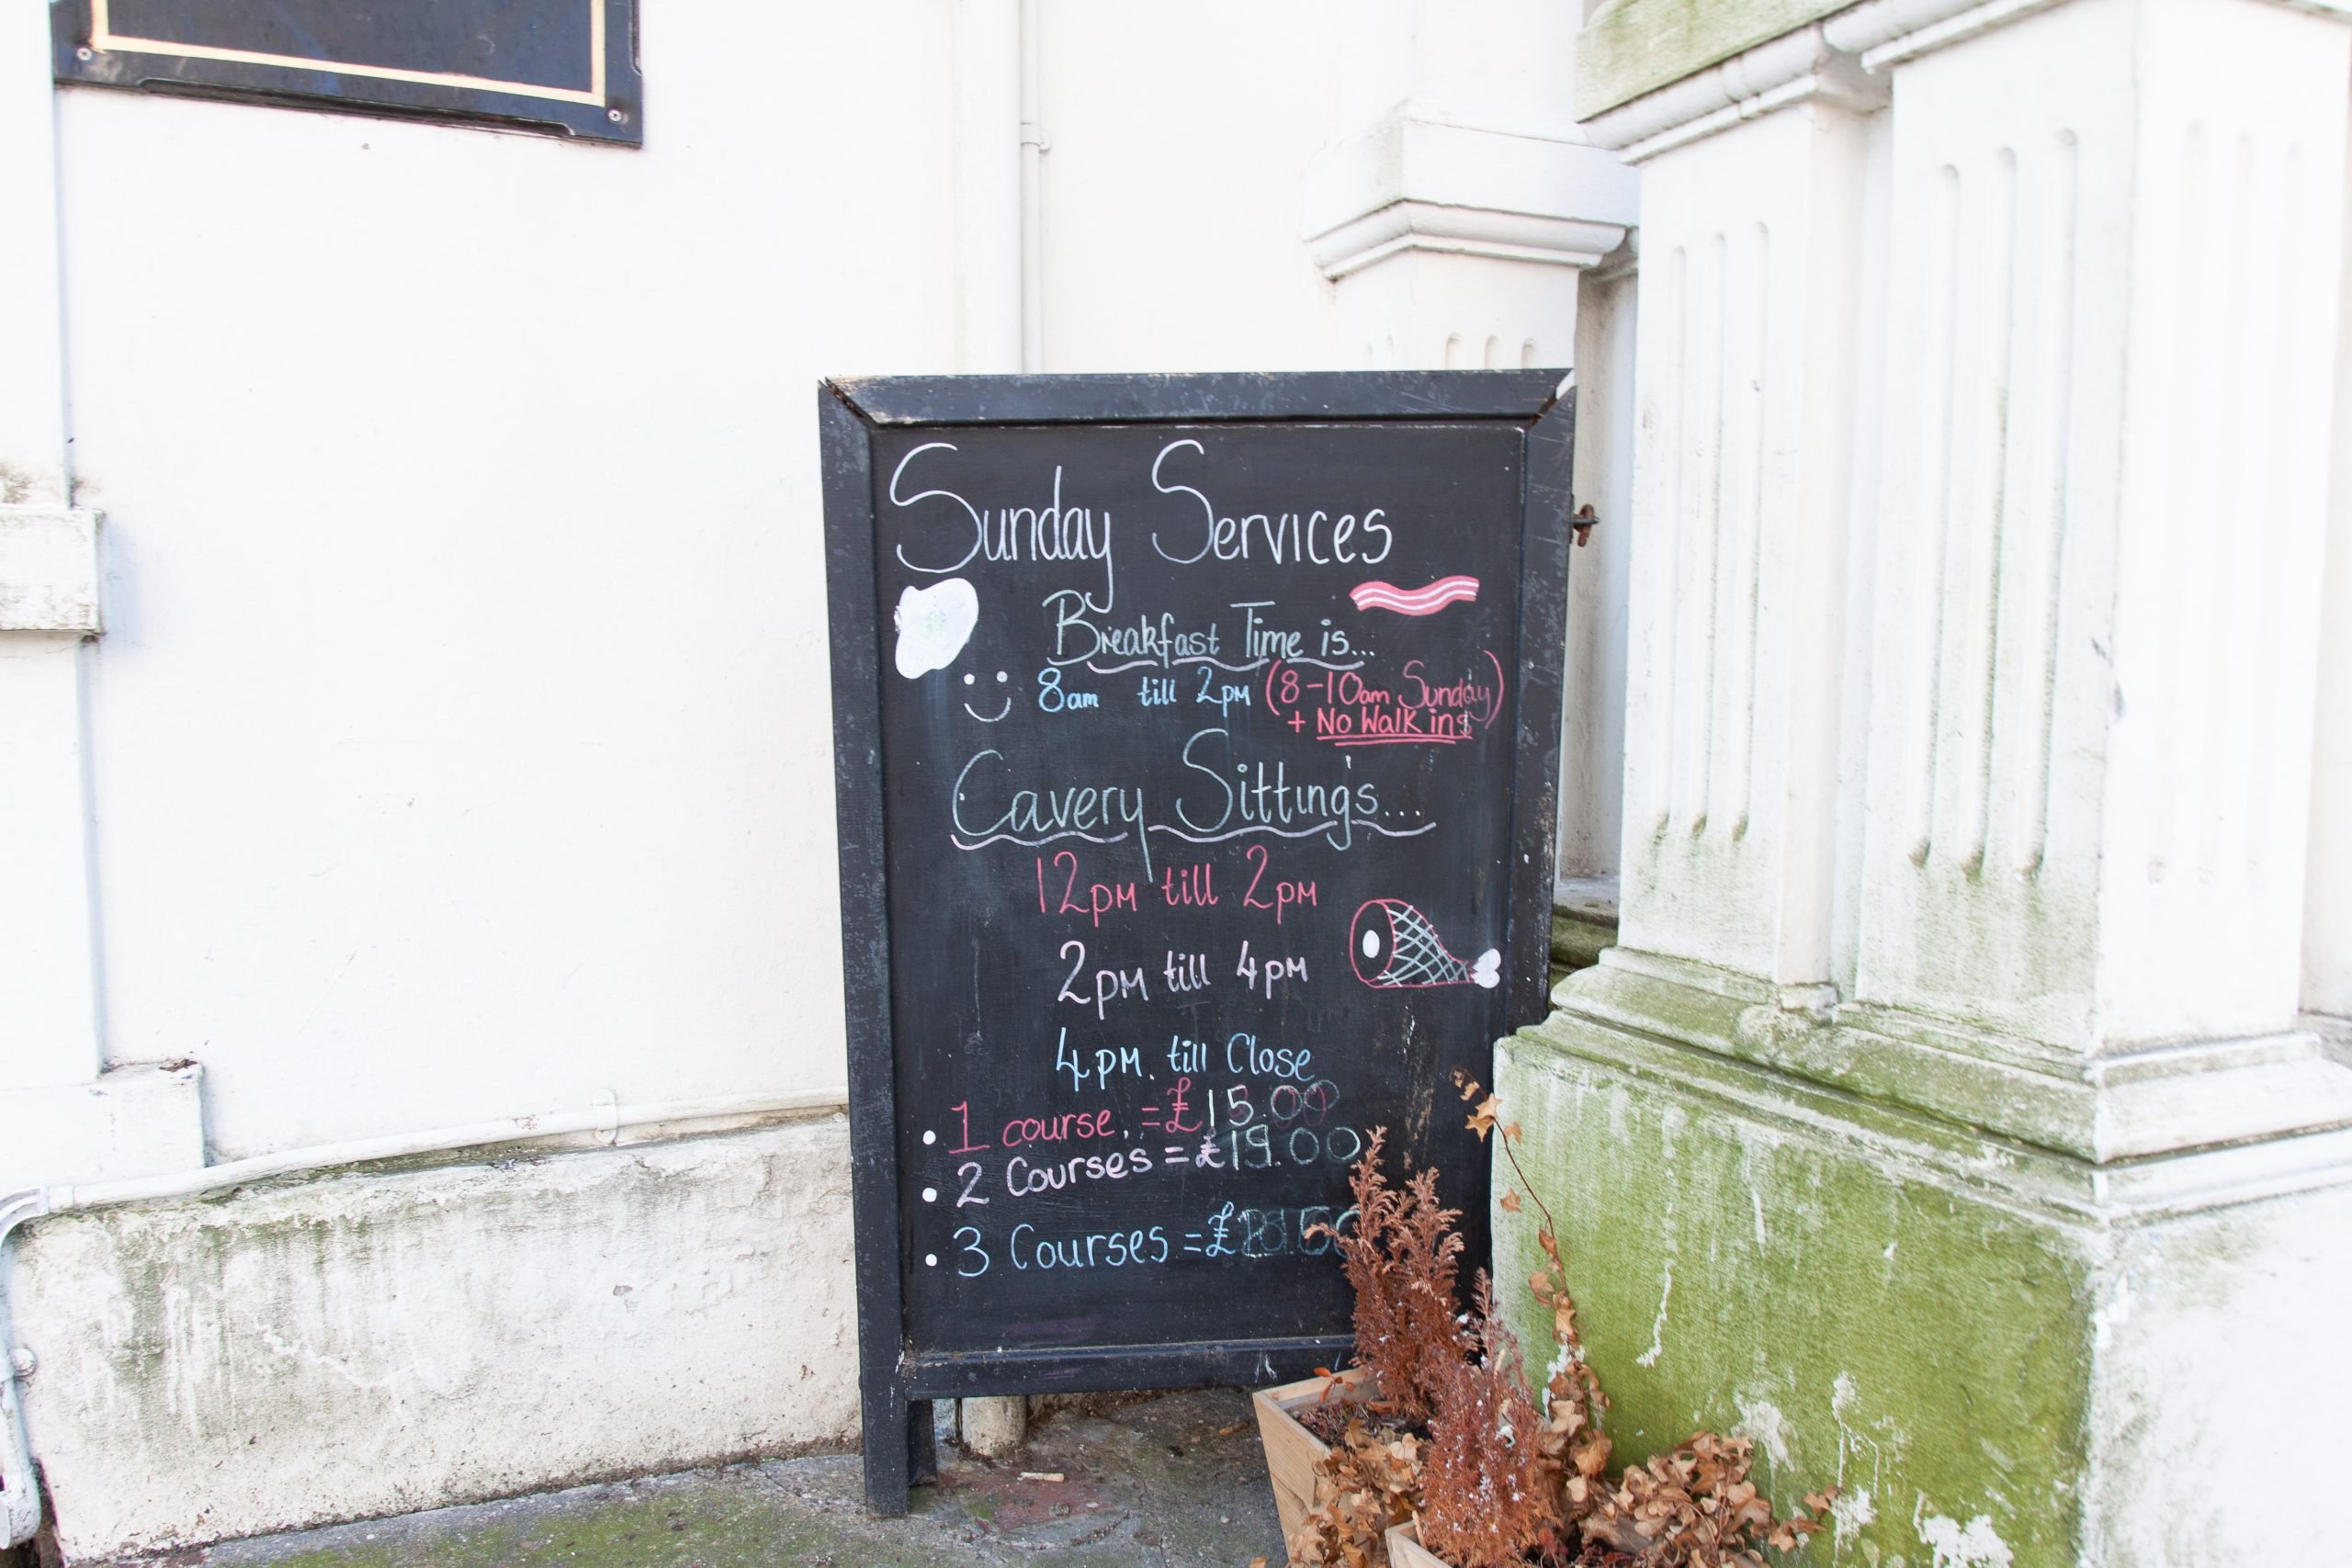 Sunday Services
Breakfast Time is...
8am till 2pm (8-10am Sunday)
+ No Walk ins
Cavery Sitting's...
12pm till 2pm
2pm till 4pm
4pm. till Close
• 1 course. = £15.00
• 2 Courses = £19.00
• 3 Courses = £